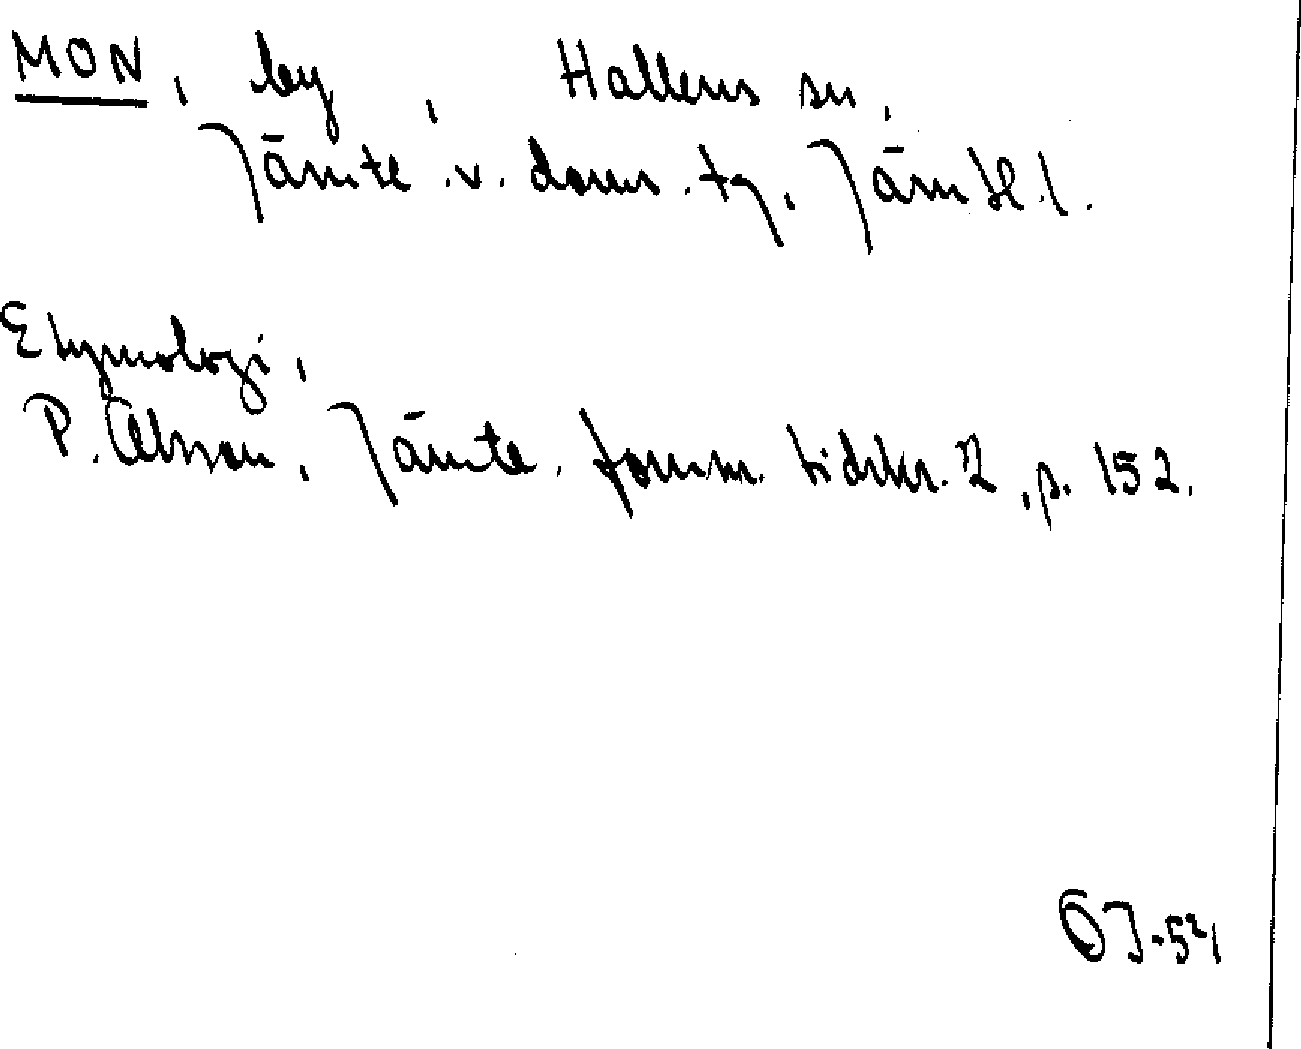 MON, by, Hallens sn,
Jämte.v. doms. tg, Jämtl.l.
Etymologi,
P. Olsson, Jämte. fornm. tidskr. 2, p. 152.